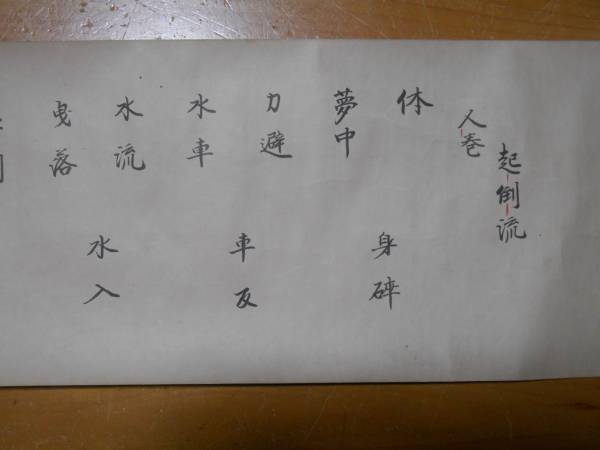 起倒流
人巻
体
身砕
夢中
力避
車反
水車
水流
水入
曳落